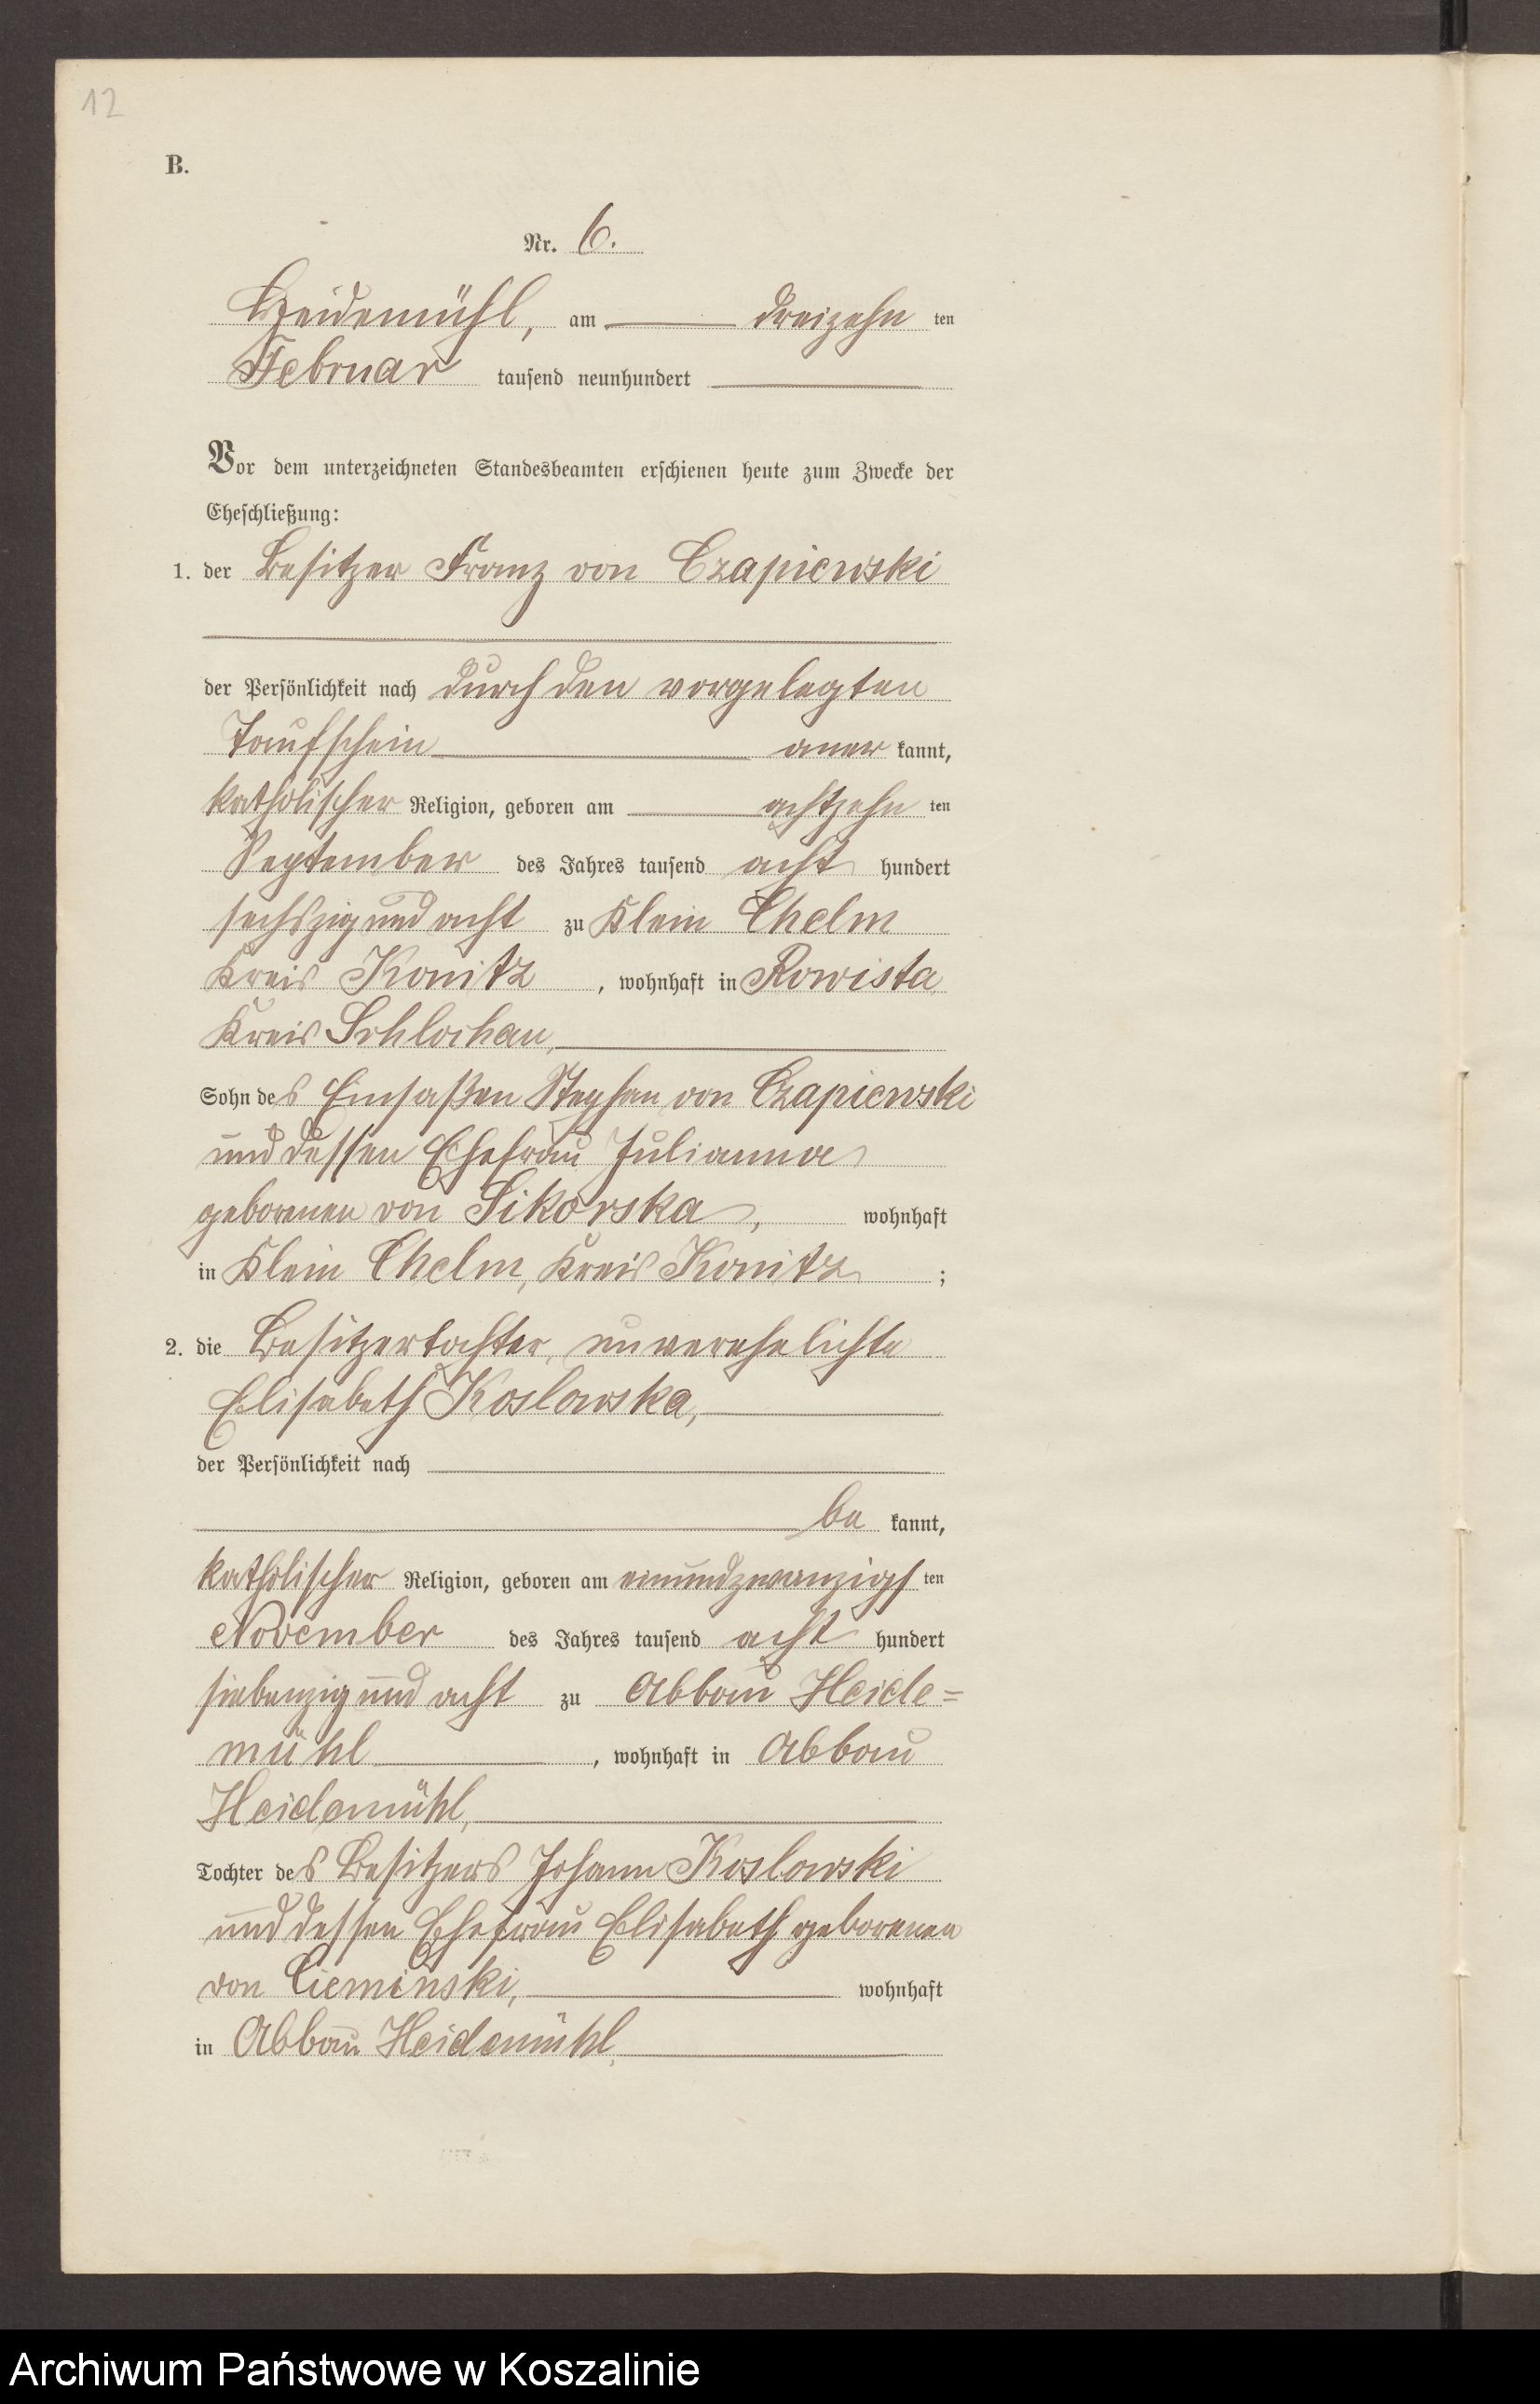 12
B.
Nr. 6.
Heidemühl, am dreizehn ten
Februar tausend neunhundert
Vor dem unterzeichneten Standesbeamten erschienen heute zum Zwecke der
Eheschließung:
1. der Besitzer Franz von Czapiewski
der Persönlichkeit nach durch den vorgelegten
Taufschein aner kannt,
katholischer Religion, geboren am achtzehn ten
September des Jahres tausend acht hundert
sechszig und acht zu Klein Chelm
Kreis Konitz, wohnhaft in Rowista
Kreis Schlochau,
Sohn des Einsaßen Stephan von Czapiewski
und dessen Ehefrau Julianna
geborenen von Sikorska, wohnhaft
in Klein Chelm, Kreis Konitz ;
2. die Besitzertochter, unverehelichte
Elisabeth Koslowska,
der Persönlichkeit nach
be kannt,
katholischer Religion, geboren am einundzwanzigs ten
November des Jahres tausend acht hundert
siebenzig und acht zu Abbau Heide=
mühl, wohnhaft in Abbau
Heidemühl,
Tochter des Besitzers Johann Koslowski
und dessen Ehefrau Elisabeth geborenen
von Cieminski, wohnhaft
in Abbau Heidemühl,
Archiwum Państwowe w Koszalinie